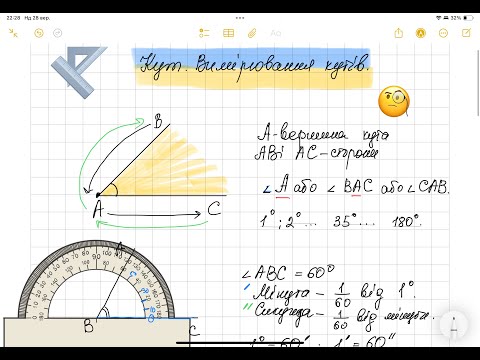 22:28 Нд 28 вер.
32%
Кут. Вимірювання кутів.
B
A
C
A - вершина кута
AB і AC - сторони
∠A або ∠BAC або ∠CAB.
1°; 2° ... 35° ... 180°
A
C
B
C
∠ABC = 60°
′ Мінута - 1/60 від 1°.
″ Секунда - 1/60 від мінути.
1° = 60′ 1′ = 60″